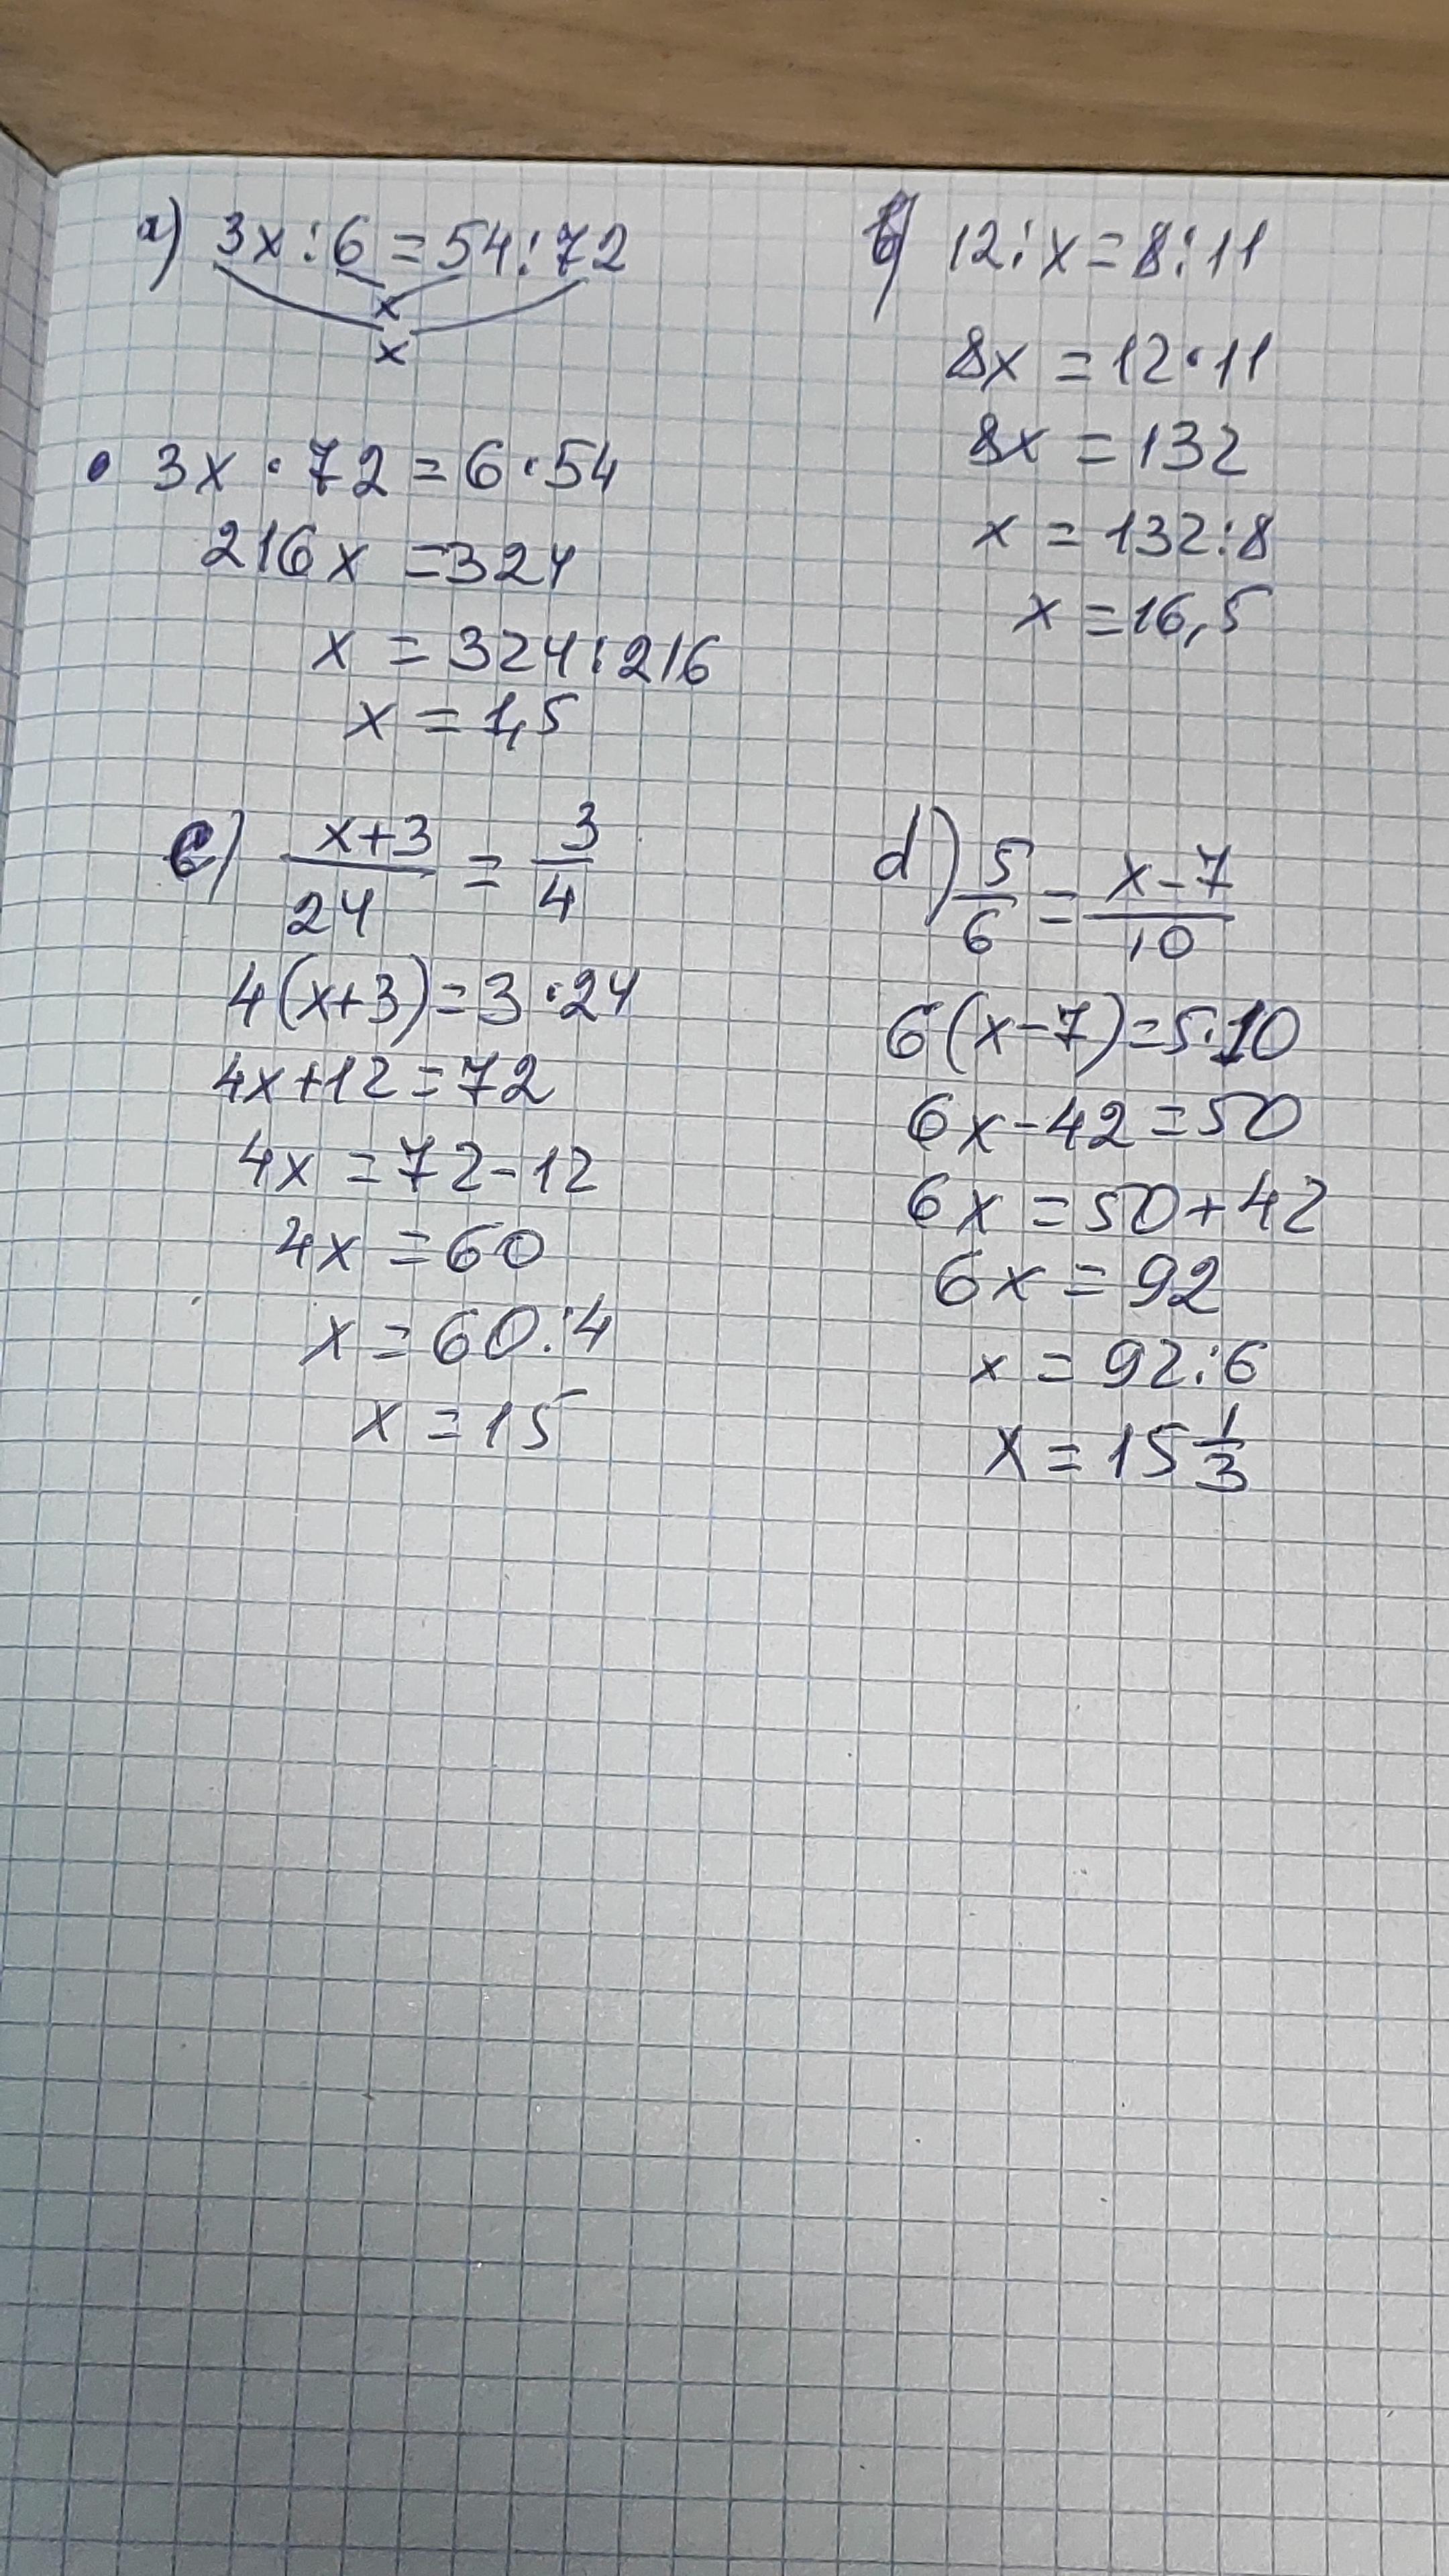 a) 3x:6=54:72
x
x
• 3x·72=6·54
216x=324
x=324:216
x=1,5
b) 12:x=8:11
8x=12·11
8x=132
x=132:8
x=16,5
c) x+3/24=3/4
4(x+3)=3·24
4x+12=72
4x=72-12
4x=60
x=60:4
x=15
d) 5/6=x-7/10
6(x-7)=5·10
6x-42=50
6x=50+42
6x=92
x=92:6
x=15 1/3